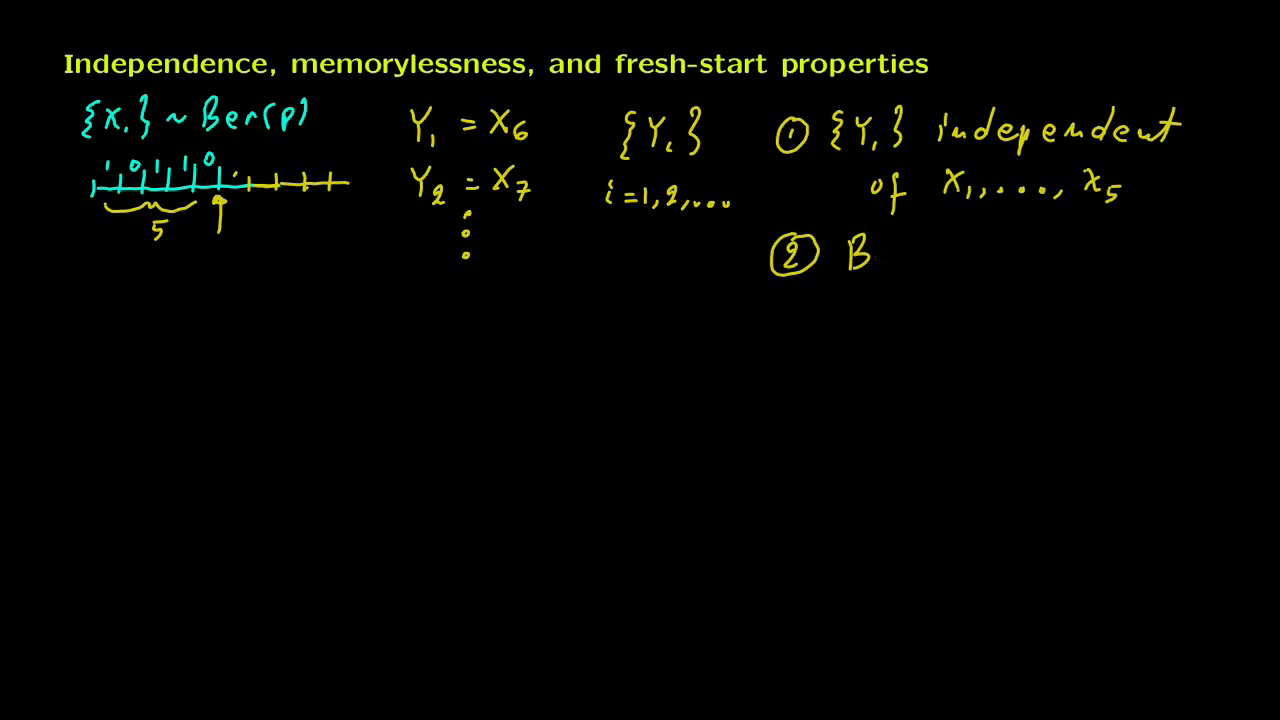 Independence, memorylessness, and fresh-start properties
{X_i} ~ Ber(p)
1 0 1 1 0
5
Y_1 = X_6
Y_2 = X_7
⋮
{Y_i}
i = 1, 2, ...
① {Y_i} independent
of X_1, ..., X_5
② B